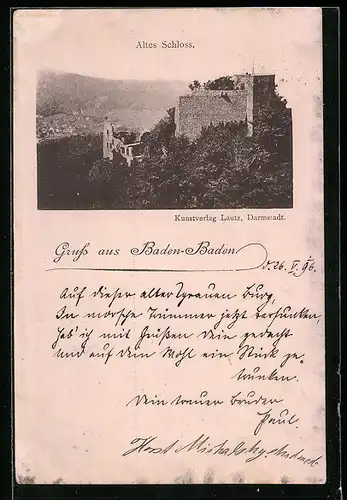 Altes Schloss.
Kunstverlag Lautz, Darmstadt.
Gruß aus Baden-Baden
d. 26. V. 96.
Auf dieser alten grauen Burg,
In morsche Trümmer jetzt versunken,
Hab' ich mit Grüßen dein gedacht
und auf dein Wohl ein Stück ge-
trunken.
Dein treuer Bruder
Paul.
Horst Michalsky